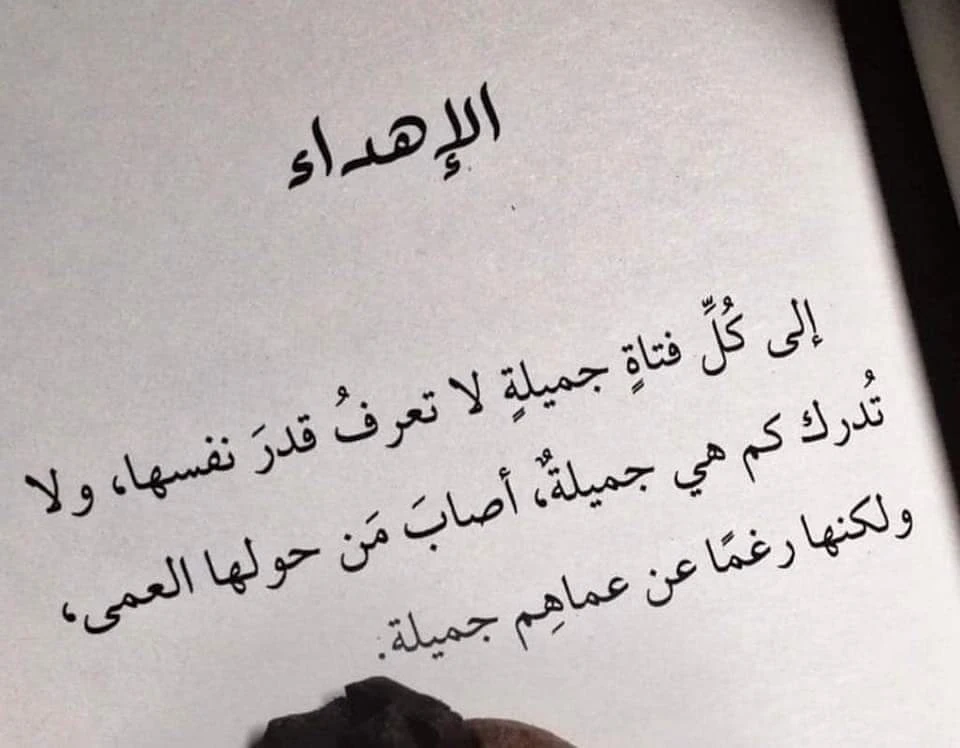 الإهداء
إلى كُلِّ فتاةٍ جميلةٍ لا تعرفُ قدرَ نفسها، ولا
تُدرك كم هي جميلةٌ، أصابَ مَن حولها العمى،
ولكنها رغمًا عن عماهِم جميلة.